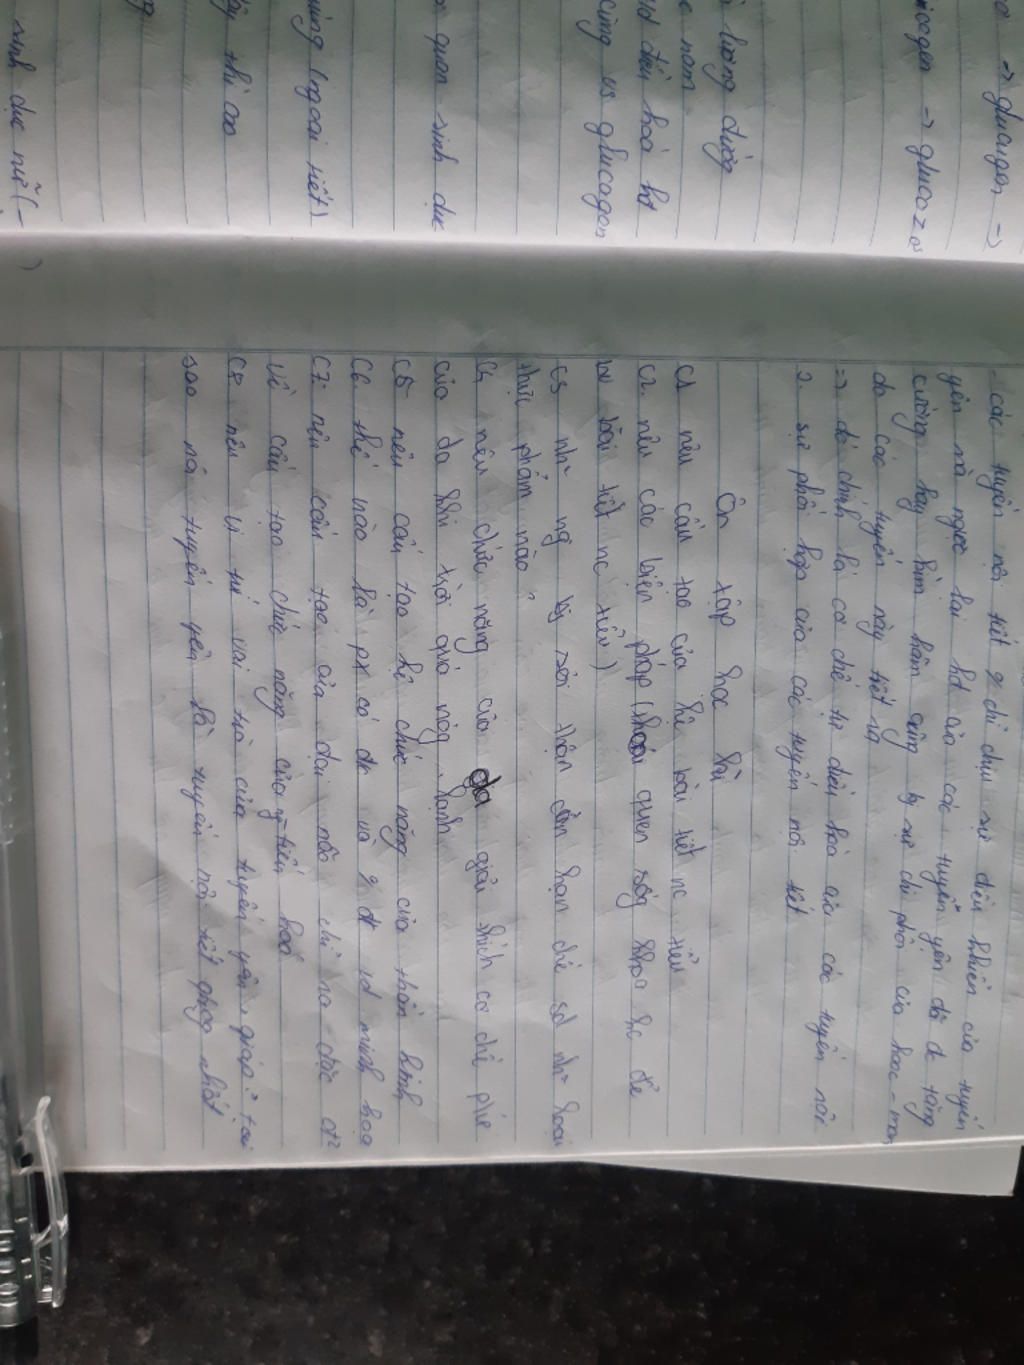 o -> glucagon ->
cogen -> glucozơ
lượng đường
c năm
vd điều hoà hđ
cùng vs glucagon
quan sinh dục
(ngoại tiết)
dậy thì ao
sinh dục nữ (-
- các tuyến nội tiết chỉ chịu sự điều khiển của tuyến
yên mà ngược lại hđ của các tuyến yên đã đc tăng
cường hay kìm hãm cũng bị sự chi phối của hooc-mon
do các tuyến này tiết ra
=> đó chính là cơ chế tự điều hoà của các tuyến nội
2. sự phối hợp của các tuyến nội tiết
Ôn tập học kì
C1 nêu cấu tạo của hệ bài tiết nc tiểu
C2. nêu các biện pháp (thói quen sống kho hc để
bv bài tiết nc tiểu)
C3 nh~ ng bị sỏi thận cần hạn chế sd nh~ loại
thực phẩm nào?
C4 nêu chức năng của da giải thích cơ chế
của da khi trời quá nóng, lạnh
C5 nêu cấu tạo hệ chức năng của thần kinh
C6 thế nào là px có đk và đk vd minh hoạ
C7 nêu cấu tạo của đại não chỉ ra đặc đ²
về cấu tạo chức năng của tiến hoá
C8 nêu vị trí vai trò của tuyến yên, giáp? tại
sao nói tuyến yên là tuyến nội tiết qtrọg nhất